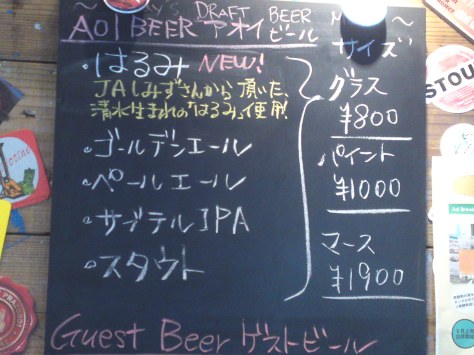 Y's DRAFT BEER
AOI BEER アオイビール
・はるみ NEW!
JAしみずさんから頂いた、
清水生まれの「はるみ」使用!
・ゴールデンエール
・ペールエール
・サブテルIPA
・スタウト
サイズ
グラス
¥800
パイント
¥1000
マース
¥1900
Guest Beer ゲストビール
STOU
Aoi Brew